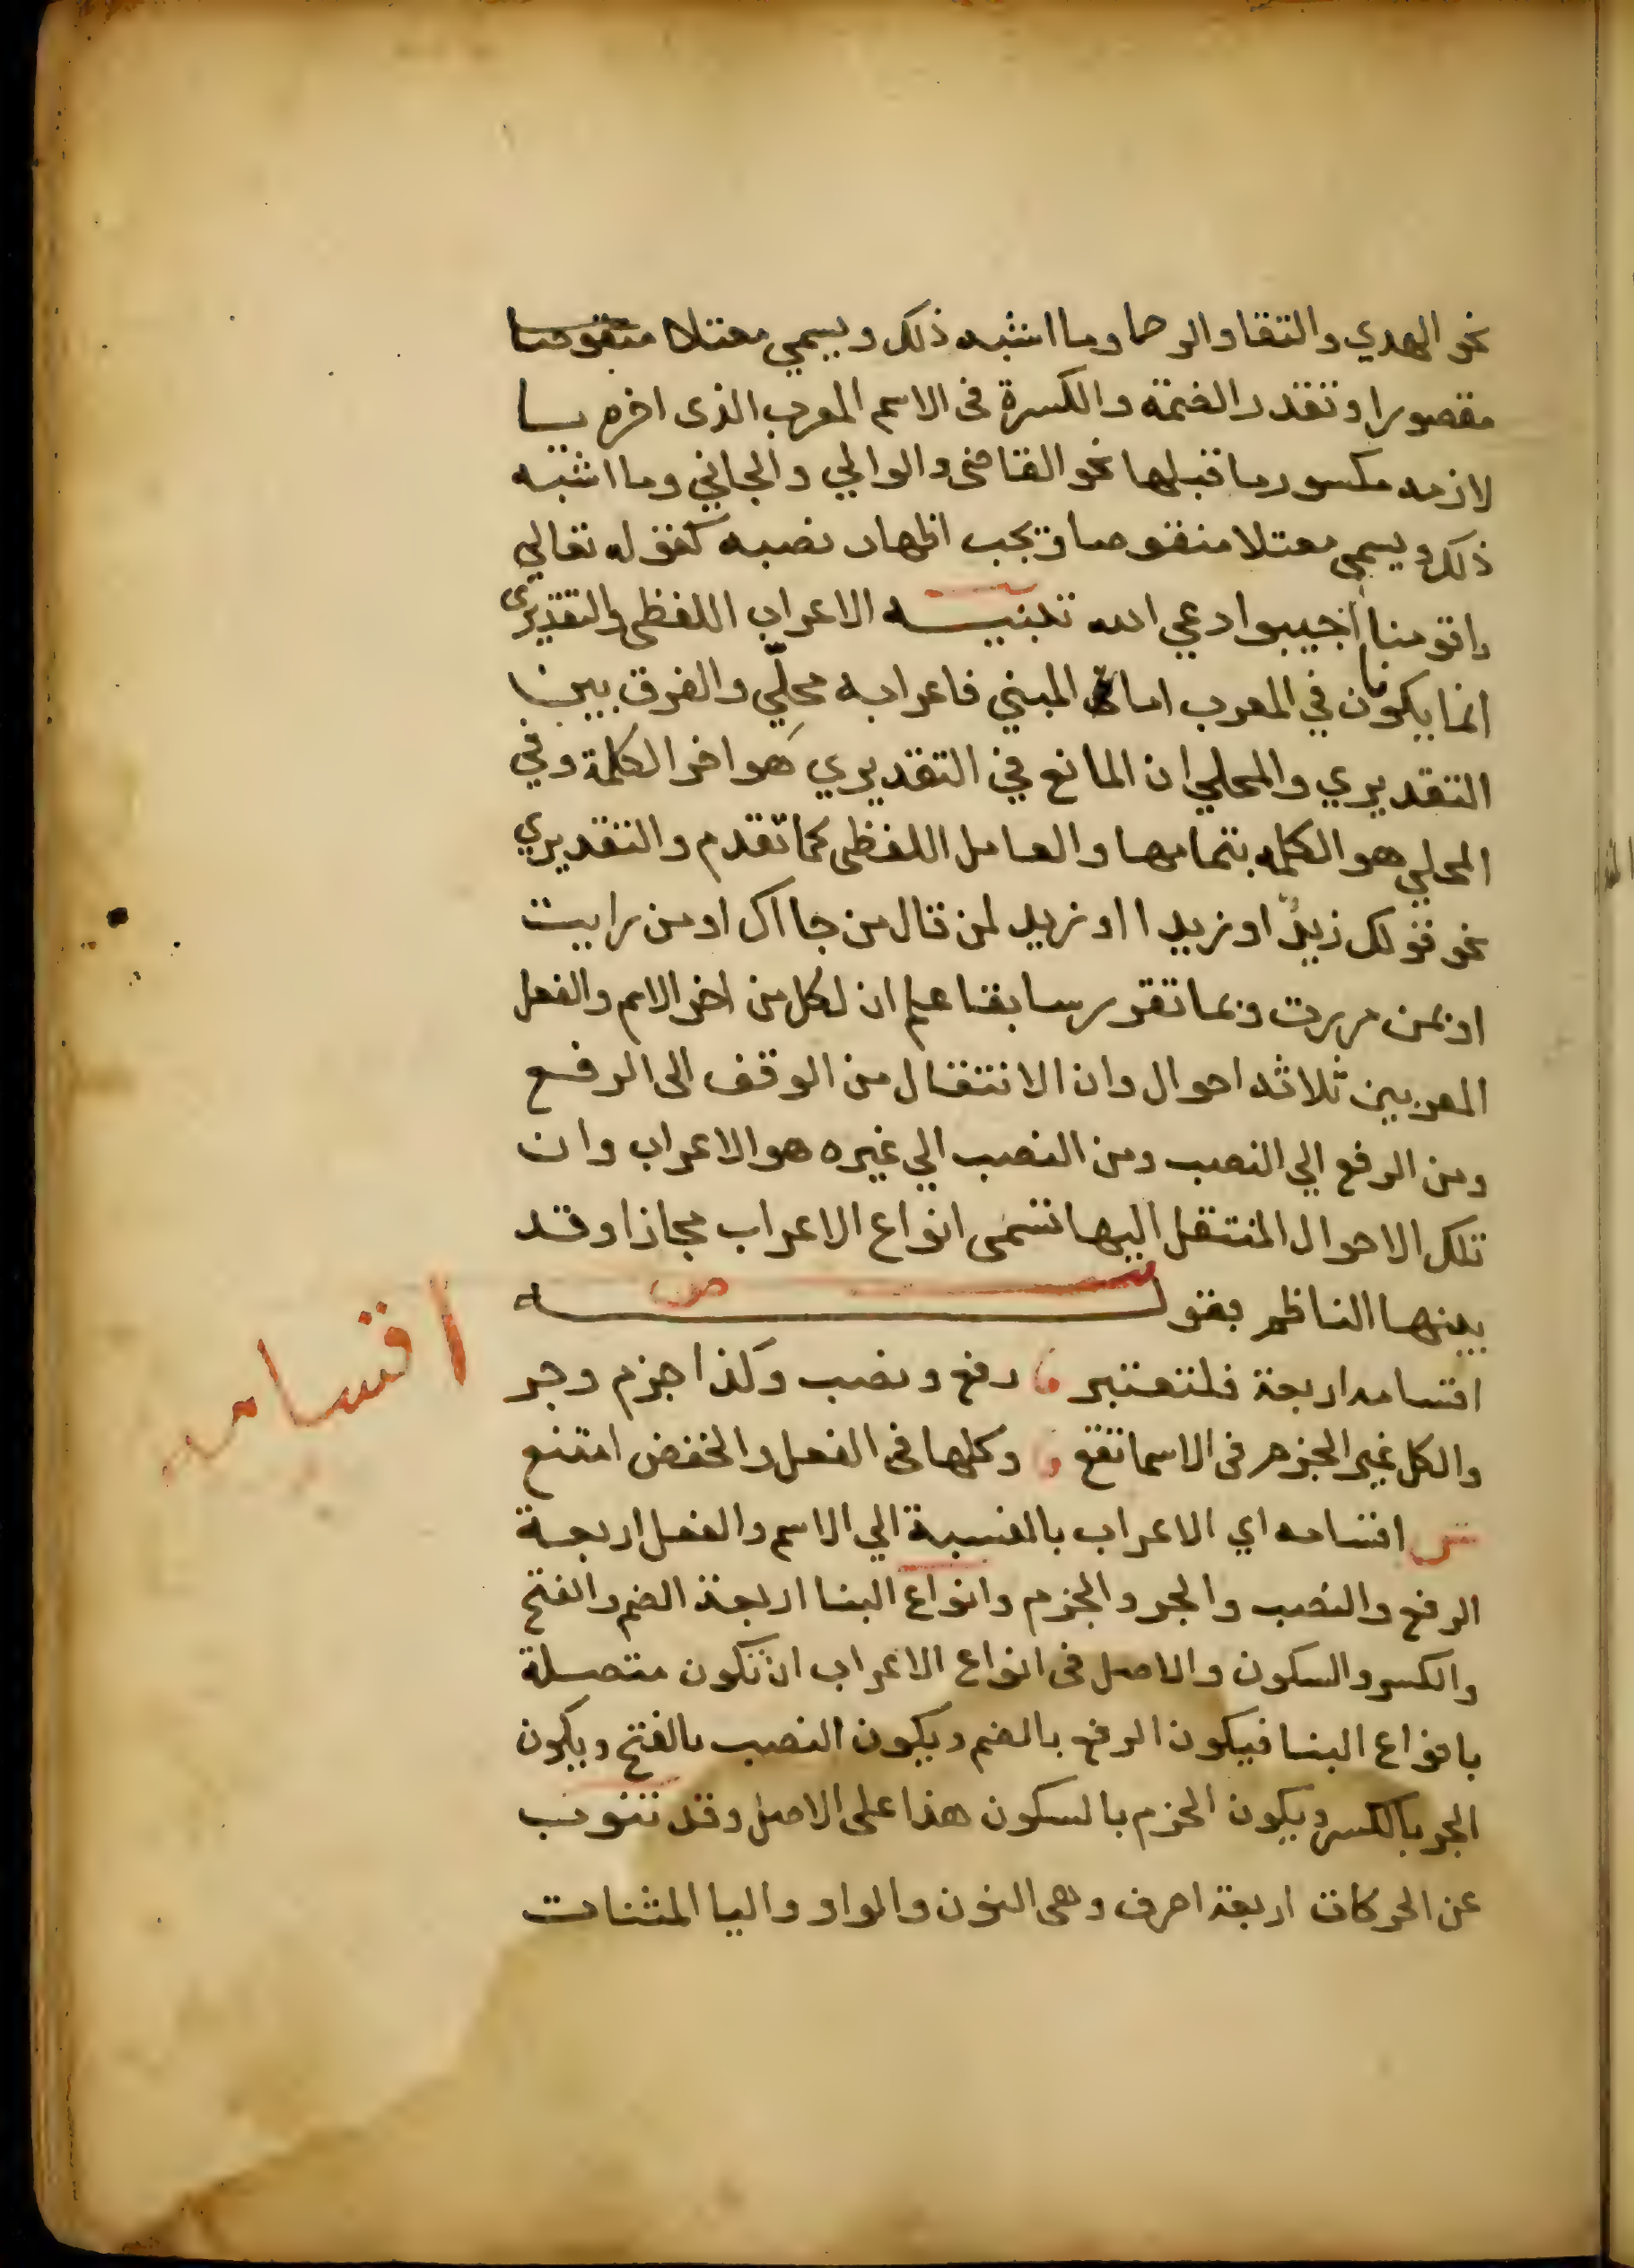 نحو الهدي والتقا والرحا وما اشبه ذلك ويسمي معتلا منقوصا
مقصورا وتقدر الضمة والكسرة فى الاسم المعرب الذى اخره يا
لازمه مكسور ما قبلها نحو القاضى والوالي والجاني وما اشبه
ذلك ويسمي معتلا منقوصا ويجب اظهار نصبه كقوله تعالي
ياقومنا اجيبوا دعي الله تنبيه الاعراب اللفظى والتقديري
انما يكونان في المعرب اما المبني فاعرابه محلّي والفرق بين
التقديري والمحلي ان المانع في التقديري هو اخر الكلمة وفي
المحلي هو الكلمه بتمامها والعامل اللفظى كما تقدم والتقديري
نحو قولك زيدٌ او زيدا او زيد لمن قال من جااك او من رايت
او بمن مررت وبما تقرر سابقا علم ان لكل من اخر الاسم والفعل
المعربين ثلاثه احوال وان الانتقال من الوقف الى الرفع
ومن الرفع الي النصب ومن النصب الي غيره هو الاعراب وان
تلك الاحوال المنتقل اليها تسمى انواع الاعراب مجازا وقد
بينها الناظم بقوله ص
اقسامه اربعة فلتعتبر رفع ونصب وكذا جزم وجر
والكل غير الجزم فى الاسما تقع وكلها فى الفعل والخفض امتنع
ش اقسامه اي الاعراب بالنسبة الي الاسم والفعل اربعة
الرفع والنصب والجر والجزم وانواع البنا اربعة الضم والفتح
والكسر والسكون والاصل فى انواع الاعراب ان تكون متصلة
بانواع البنا فيكون الرفع بالضم ويكون النصب بالفتح ويكون
الجر بالكسر ويكون الجزم بالسكون هذا على الاصل وقد تنوب
عن الحركات اربعة احرف وهى النون والواو واليا المثنات
اقسامه